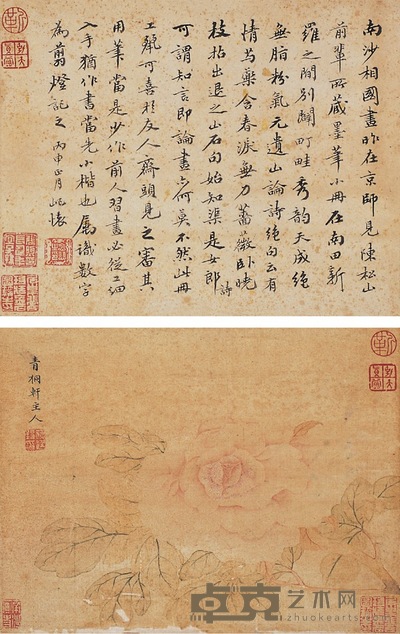 南沙相國畫昨在京師見陳松山
前輩所藏墨筆小冊在南田新
羅之間別闢町畦秀韻天成絕
無脂粉氣元遺山論詩絕句云有
情芍藥含春淚無力薔薇臥曉
枝拈出退之山石句始知渠是女郎
詩
可謂知言即論畫亦何莫不然此冊
工麗可喜於友人齋頭見之審其
用筆當是少作前人習畫必從工細
入手猶作書當先小楷也屬識數字
為翦燈記之 丙申正月屺懷
青桐軒主人
卓克艺术网
zhuokearts.com